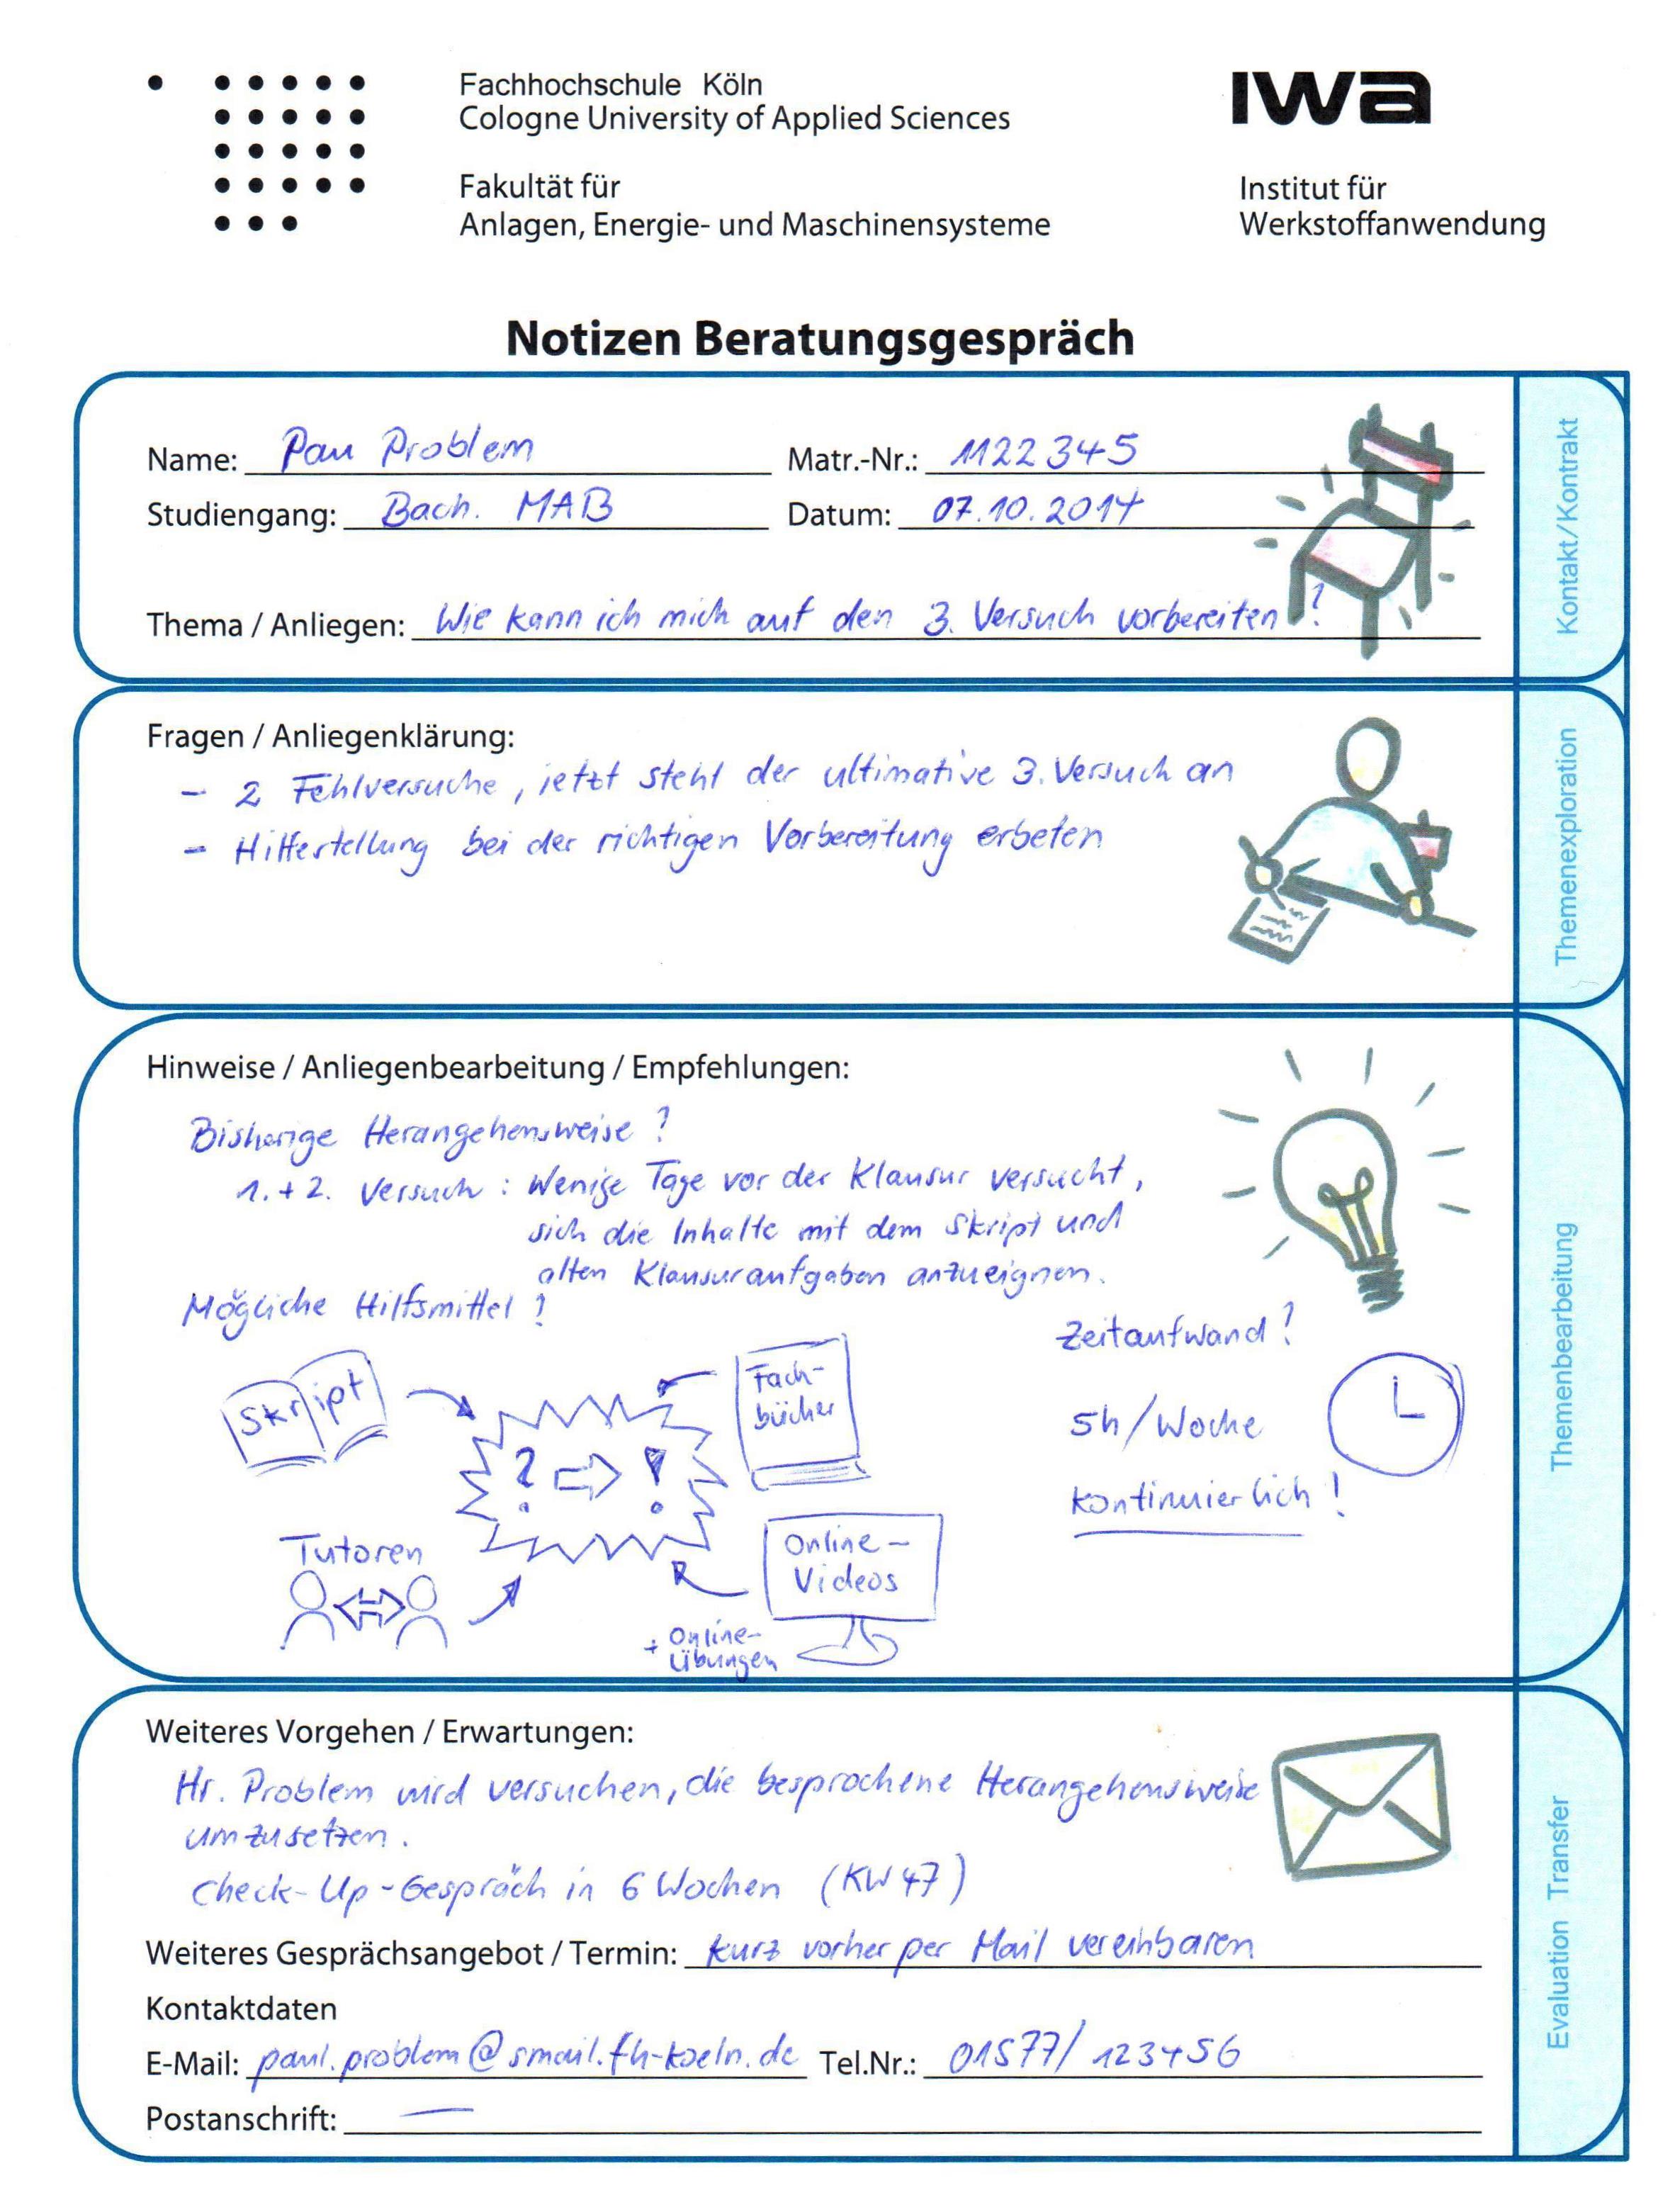 Fachhochschule Köln
Cologne University of Applied Sciences
Fakultät für
Anlagen, Energie- und Maschinensysteme
iwa
Institut für
Werkstoffanwendung
Notizen Beratungsgespräch
Name: Pau Problem Matr.-Nr.: 1122345
Studiengang: Bach. MAB Datum: 07.10.2014
Thema / Anliegen: Wie kann ich mich auf den 3. Versuch vorbereiten?
Kontakt/Kontrakt
Fragen / Anliegenklärung:
- 2 Fehlversuche, jetzt steht der ultimative 3. Versuch an
- Hilfestellung bei der richtigen Vorbereitung erbeten
Themenexploration
Hinweise / Anliegenbearbeitung / Empfehlungen:
Bisherige Herangehensweise?
1. + 2. Versuch: Wenige Tage vor der Klausur versucht,
sich die Inhalte mit dem Skript und
alten Klausuraufgaben anzueignen.
Mögliche Hilfsmittel?
Skript
Fach-
bücher
? ⇨ !
Tutoren
Online-
Videos
+ Online-
Übungen
Zeitaufwand?
5h/Woche
kontinuierlich!
Themenbearbeitung
Weiteres Vorgehen / Erwartungen:
Hr. Problem wird versuchen, die besprochene Herangehensweise
umzusetzen.
Check-Up-Gespräch in 6 Wochen (KW 47)
Weiteres Gesprächsangebot / Termin: kurz vorher per Mail vereinbaren
Kontaktdaten
E-Mail: paul.problem@smail.fh-koeln.de Tel.Nr.: 01577/123456
Postanschrift: —
Evaluation Transfer